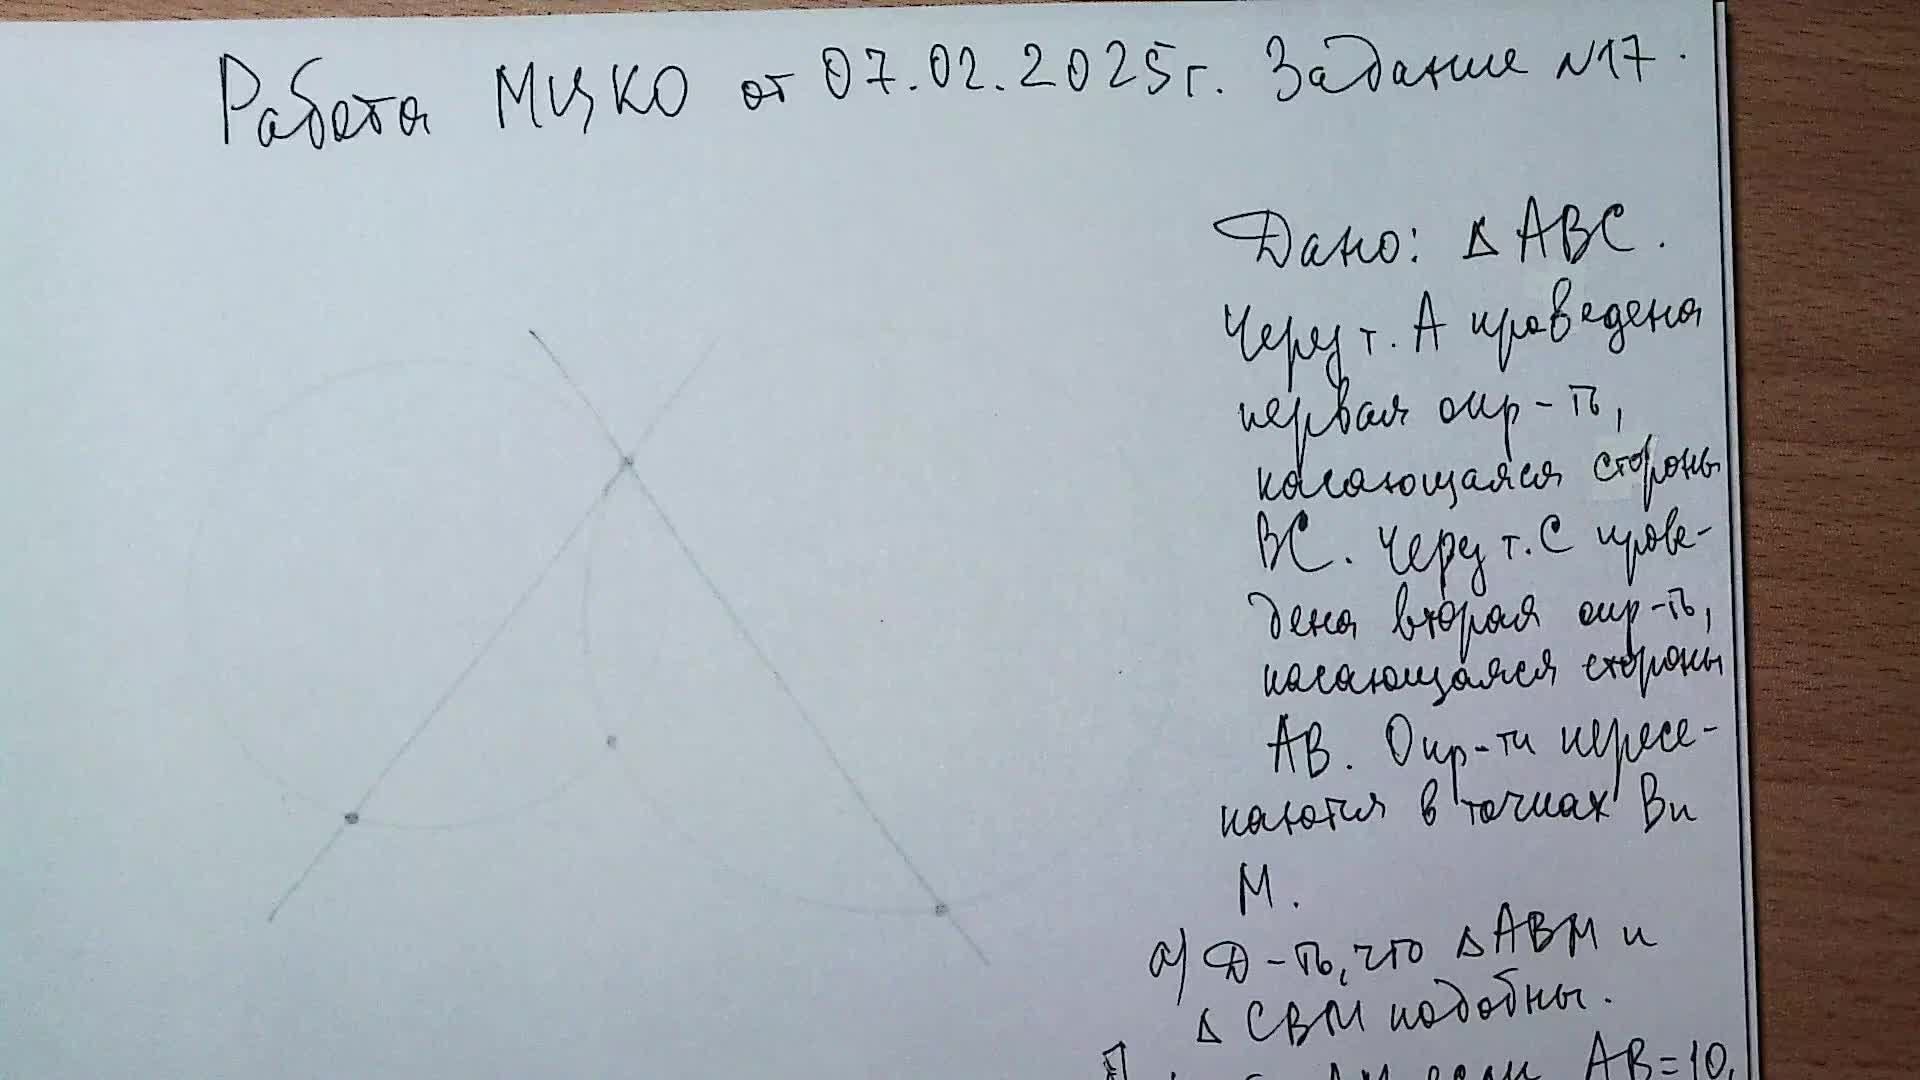 Работа МЦКО от 07.02.2025г. Задание №17.
Дано: Δ ABC.
Через т. А проведена
первая окр-ть,
касающаяся стороны
BC. Через т. С прове-
дена вторая окр-ть,
касающаяся стороны
AB. Окр-ти пересе-
каются в точках B и
M.
а) Д-ть, что Δ ABM и
Δ CBM подобны.
если AB=10,